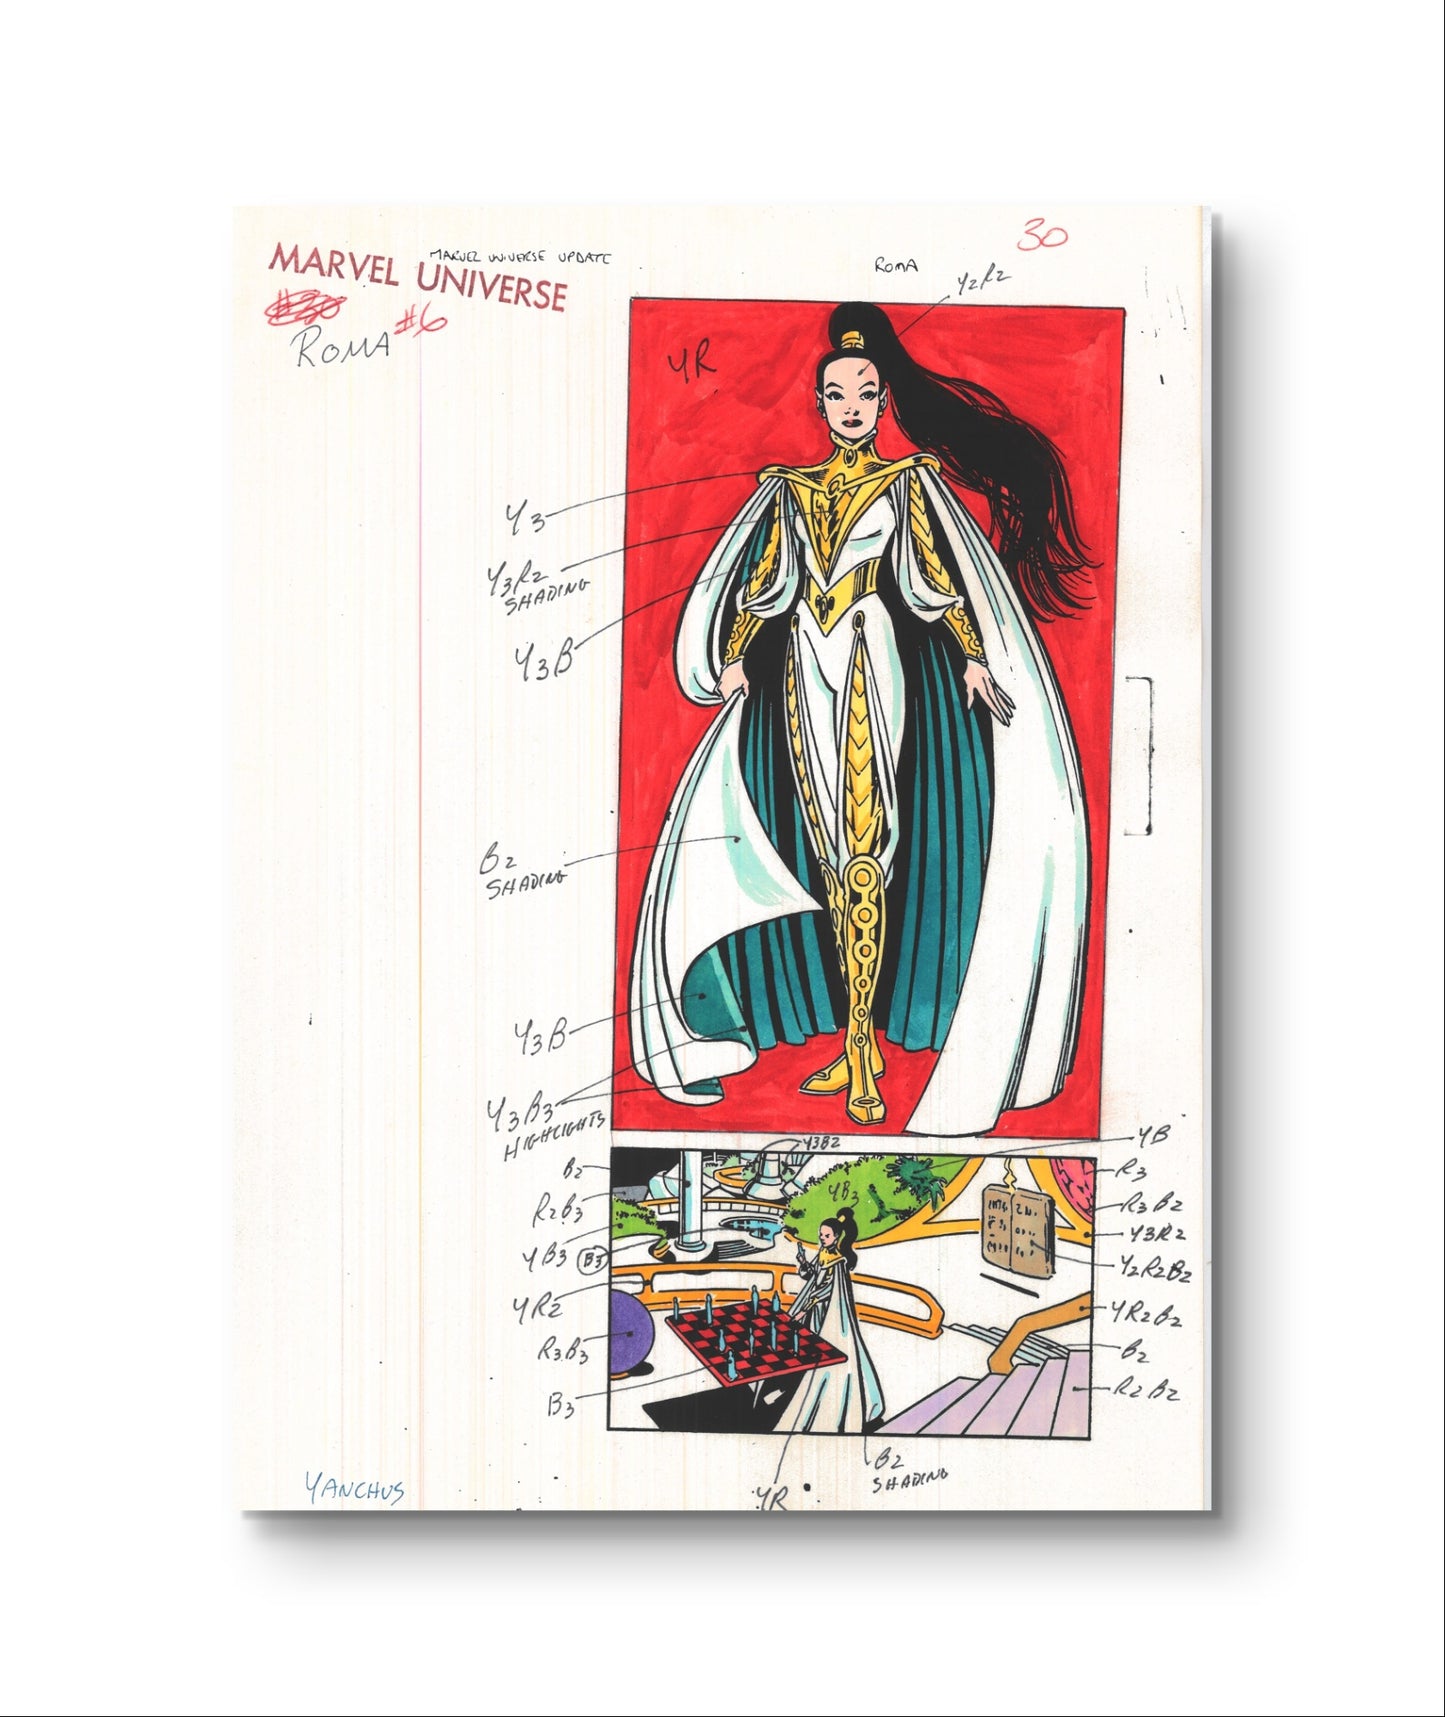 30
MARVEL UNIVERSE
MARVEL UNIVERSE UPDATE
ROMA
#30
#6
ROMA
Y2R2
YR
Y3
Y3R2
SHADING
Y3B
B2
SHADING
Y3B
Y3B3
HIGHLIGHTS
Y3B2
YB
B2
R3
R2B3
YB3
R3B2
YB3
B3
Y3R2
Y2R2B2
YR2
YR2B2
R3B3
B2
B3
R2B2
B2
SHADING
YR
YANCHUS